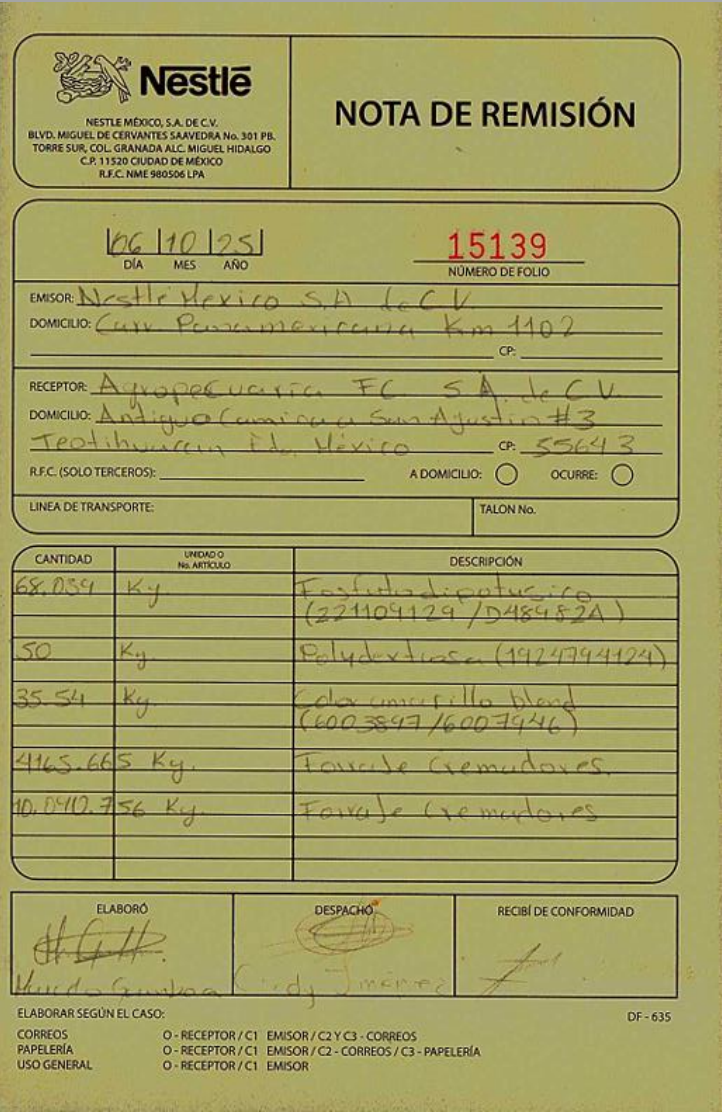 Nestlé
NESTLE MÉXICO, S.A. DE C.V.
BLVD. MIGUEL DE CERVANTES SAAVEDRA No. 301 PB.
TORRE SUR, COL. GRANADA ALC. MIGUEL HIDALGO
C.P. 11520 CIUDAD DE MÉXICO
R.F.C. NME 980506 LPA
NOTA DE REMISIÓN
06 10 25
DÍA MES AÑO
15139
NÚMERO DE FOLIO
EMISOR: Nestlé Mexico S.A de C.V.
DOMICILIO: Carr. Panamericana Km 1102
CP:
RECEPTOR: Agropecuaria FC S.A. de C.V.
DOMICILIO: Antiguo Camino a San Agustin #3
Teotihuacan Edo. México CP: 55643
R.F.C. (SOLO TERCEROS): A DOMICILIO: OCURRE:
LINEA DE TRANSPORTE: TALON No.
CANTIDAD UNIDAD O No. ARTÍCULO DESCRIPCIÓN
68.039 Kg. Fosfato dipotasico
(221109129 / D48982A)
50 Kg. Polydextrosa (1924794124)
35.54 Kg. Color amarillo blend
(6003897/6007946)
4165.665 Kg. Forraje Cremadores.
10.0410.756 Kg. Forraje Cremadores
ELABORÓ DESPACHÓ RECIBÍ DE CONFORMIDAD
Cindy Jimenez
ELABORAR SEGÚN EL CASO: DF - 635
CORREOS O - RECEPTOR / C1 EMISOR / C2 Y C3 - CORREOS
PAPELERÍA O - RECEPTOR / C1 EMISOR / C2 - CORREOS / C3 - PAPELERÍA
USO GENERAL O - RECEPTOR / C1 EMISOR